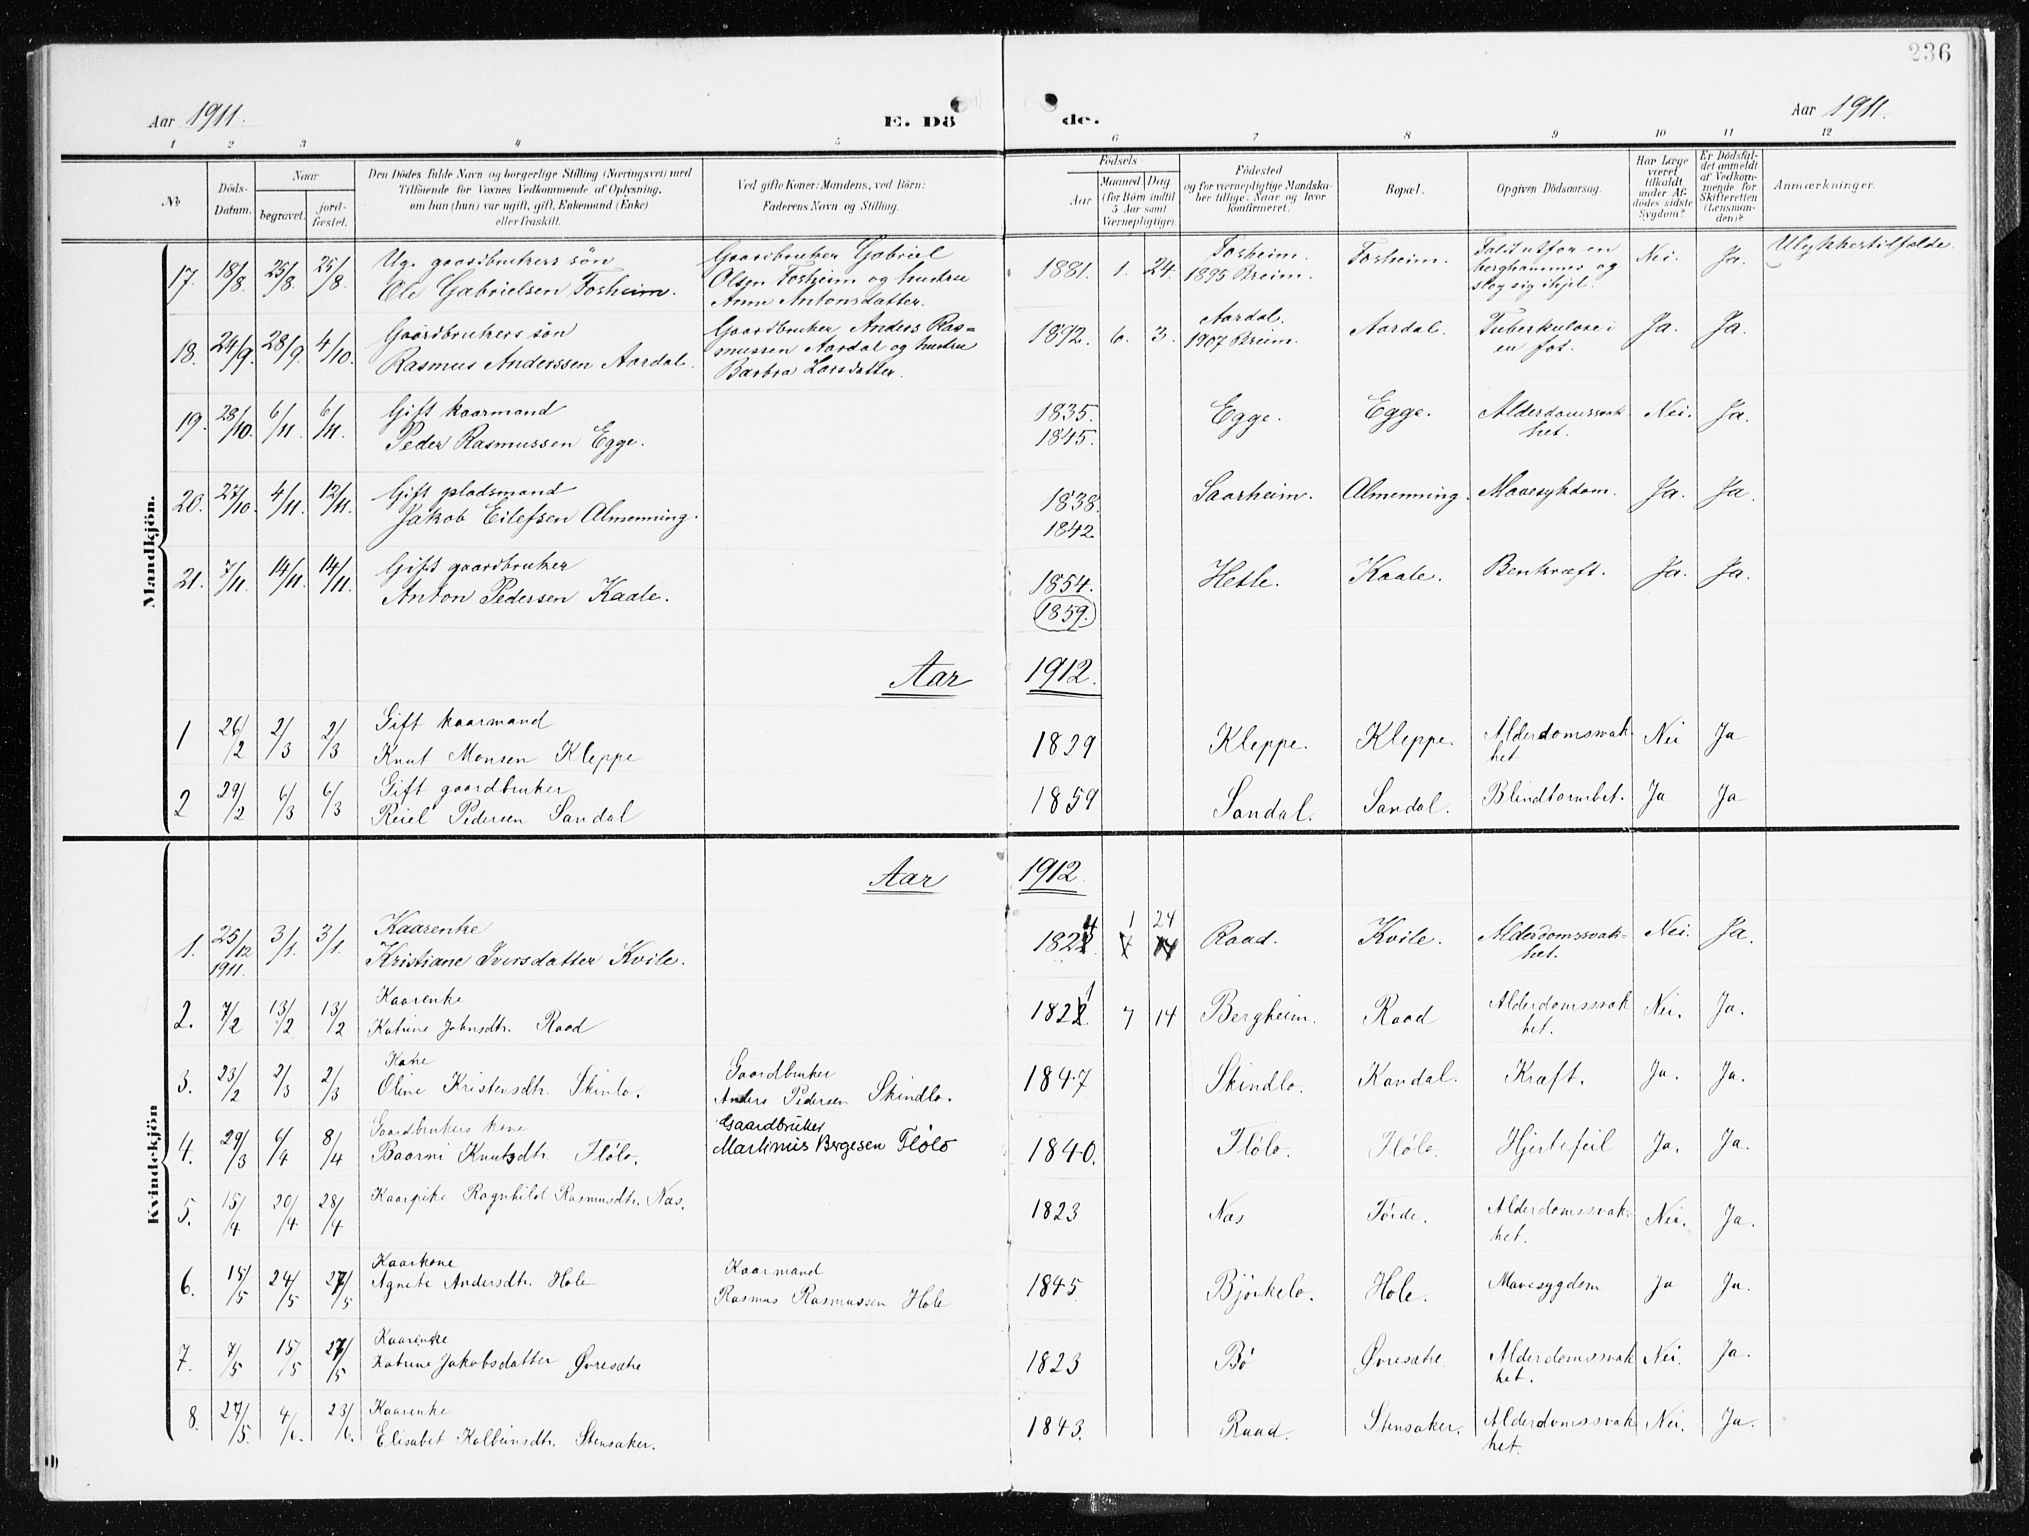 236
Aar 1911.
E. Dö
de.
Aar 1911.
1 2 3 4 5 6 7 8 9 10 11 12
No
Döds-
Datum.
Naar
begravet.
jord-
fæstet.
Den Dödes fulde Navn og borgerlige Stilling (Næringsvei) med
Tilföiende for Voxnes Vedkommende af Oplysning,
om han (hun) var ugift, gift, Enkemand (Enke)
eller fraskilt.
Ved gifte Koner: Mandens, ved Börn:
Faderens Navn og Stilling.
Födsels
Aar
Maaned Dag
(for Börn indtil
5 Aar samt
Værnepligtige)
Födested
og for værnepligtige Mandska-
ber tillige: Naar og hvor
konfirmeret.
Bopæl.
Opgiven Dödsaarsag.
Har Læge
været
tilkaldt
under Af-
dödes sidste
Sygdom?
Er Dödsfal-
det anmeldt
af Vedkom-
mende for
Skifteretten
(Lensman-
den)?
Anmærkninger.
Mandkjön.
17. 18/8 25/8 25/8 Ug. gaardbrukers søn
Ole Gabrielsen Fosheim.
Gaardbruker Gabriel
Olsen Fosheim og hustru
Anne Antonsdatter.
1881. 1. 24. Fosheim.
1895 Breim.
Fosheim.
Faldt utfor en
berghammer og
slog sig ihjel.
Nei. Ja. Ulykkestilfælde.
18. 24/9. 28/9. 4/10. Gaardbrukers søn
Rasmus Anderssen Aardal.
Gaardbruker Anders Ras=
mussen Aardal og hustru
Barbra Larsdatter.
1892. 6. 3. Aardal.
1907 Breim.
Aardal.
Tuberkulose i
en fot.
Ja. Ja.
19. 28/10. 6/11. 6/11. Gift kaarmand
Peder Rasmussen Egge.
1835.
1845.
Egge. Egge. Alderdomssvak-
het.
Nei. Ja.
20. 27/10. 4/11. 12/11. Gift pladsmand
Jakob Eilefsen Almenning.
1838.
1842.
Saarheim. Almenning. Mavesykdom. Ja. Ja.
21. 7/11. 14/11. 14/11. Gift gaardbruker
Anton Pedersen Kaale.
1854.
1859.
Hetle. Kaale. Benkræft. Ja. Ja.
Aar 1912.
1 26/2 2/3 2/3 Gift kaarmand
Knut Monsen Kleppe
1829 Kleppe. Kleppe. Alderdomssvak-
het
Nei Ja
2 29/2 6/3 6/3 Gift gaardbruker
Reiel Pedersen Sandal
1859 Sandal. Sandal. Blindtarmbet. Ja Ja
Kvindekjön
Aar 1912.
1. 25/12 1911. 3/1. 3/1. Kaarenke
Kristiane Iversdatter Kvile.
1 24
Raad. Kvile. Alderdomssvak-
het.
Nei. Ja.
2. 7/2 13/2 13/2 Kaarenke
Katrine Johnsdtr. Raad
1821 7 14 Bergheim. Raad Alderdomssvak
het.
Nei. Ja.
3. 23/2 2/3 2/3 Kone
Oline Kristensdtr. Skinlo.
Gaardbruker
Anders Pedersen Skindlo.
1847 Skindlo. Kandal. Kræft. Ja. Ja.
4. 29/3 6/4 8/4 Gaardbrukers kone
Baarni Knutsdtr. Flølo.
Gaardbruker
Martinus Børgesen Flølo
1840. Flølo. Flølo. Hjertefeil Ja. Ja.
5. 15/4 20/4 28/4 Kaarpike Ragnhild Rasmusdtr. Nas.
1823 Nas Førde. Alderdomssvak-
het.
Nei. Ja.
6. 15/5 24/5 27/5 Kaarkone
Agnete Andersdtr. Hole
Kaarmand
Rasmus Rasmussen Hole
1845. Bjørkelo. Hole. Mavesygdom Ja Ja.
7. 7/5 15/5 27/5 Kaarenke
Katrine Jakobsdatter Øvresætre
1823 Bø Øvresætre. Alderdomssvak
het.
Nei. Ja.
8. 27/5. 4/6. 23/6. Kaarenke
Elisabet Kolbeinsdtr. Stensaker.
1843. Raad. Stensaker. Alderdomssvak
het.
Nei. Ja.